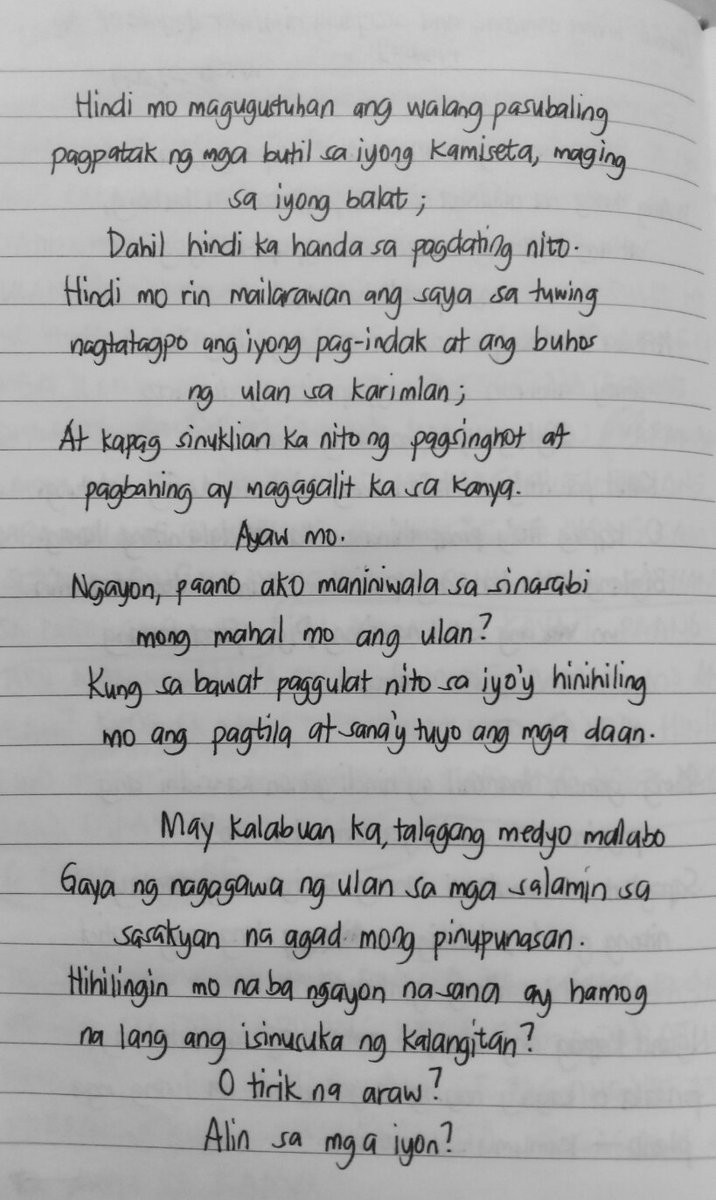 Hindi mo magugustuhan ang walang pasubaling
pagpatak ng mga butil sa iyong kamiseta, maging
sa iyong balat;
Dahil hindi ka handa sa pagdating nito.
Hindi mo rin mailarawan ang saya sa tuwing
nagtatagpo ang iyong pag-indak at ang buhos
ng ulan sa karimlan;
At kapag sinuklian ka nito ng pagsinghot at
pagbahing ay magagalit ka sa kanya.
Ayaw mo.
Ngayon, paano ako maniniwala sa sinasabi
mong mahal mo ang ulan?
Kung sa bawat paggulat nito sa iyo'y hinihiling
mo ang pagtila at sana'y tuyo ang mga daan.
May kalabuan ka, talagang medyo malabo
Gaya ng nagagawa ng ulan sa mga salamin sa
sasakyan na agad mong pinupunasan.
Hihilingin mo na ba ngayon na sana ay hamog
na lang ang isinusuka ng kalangitan?
O tirik na araw?
Alin sa mga iyon?